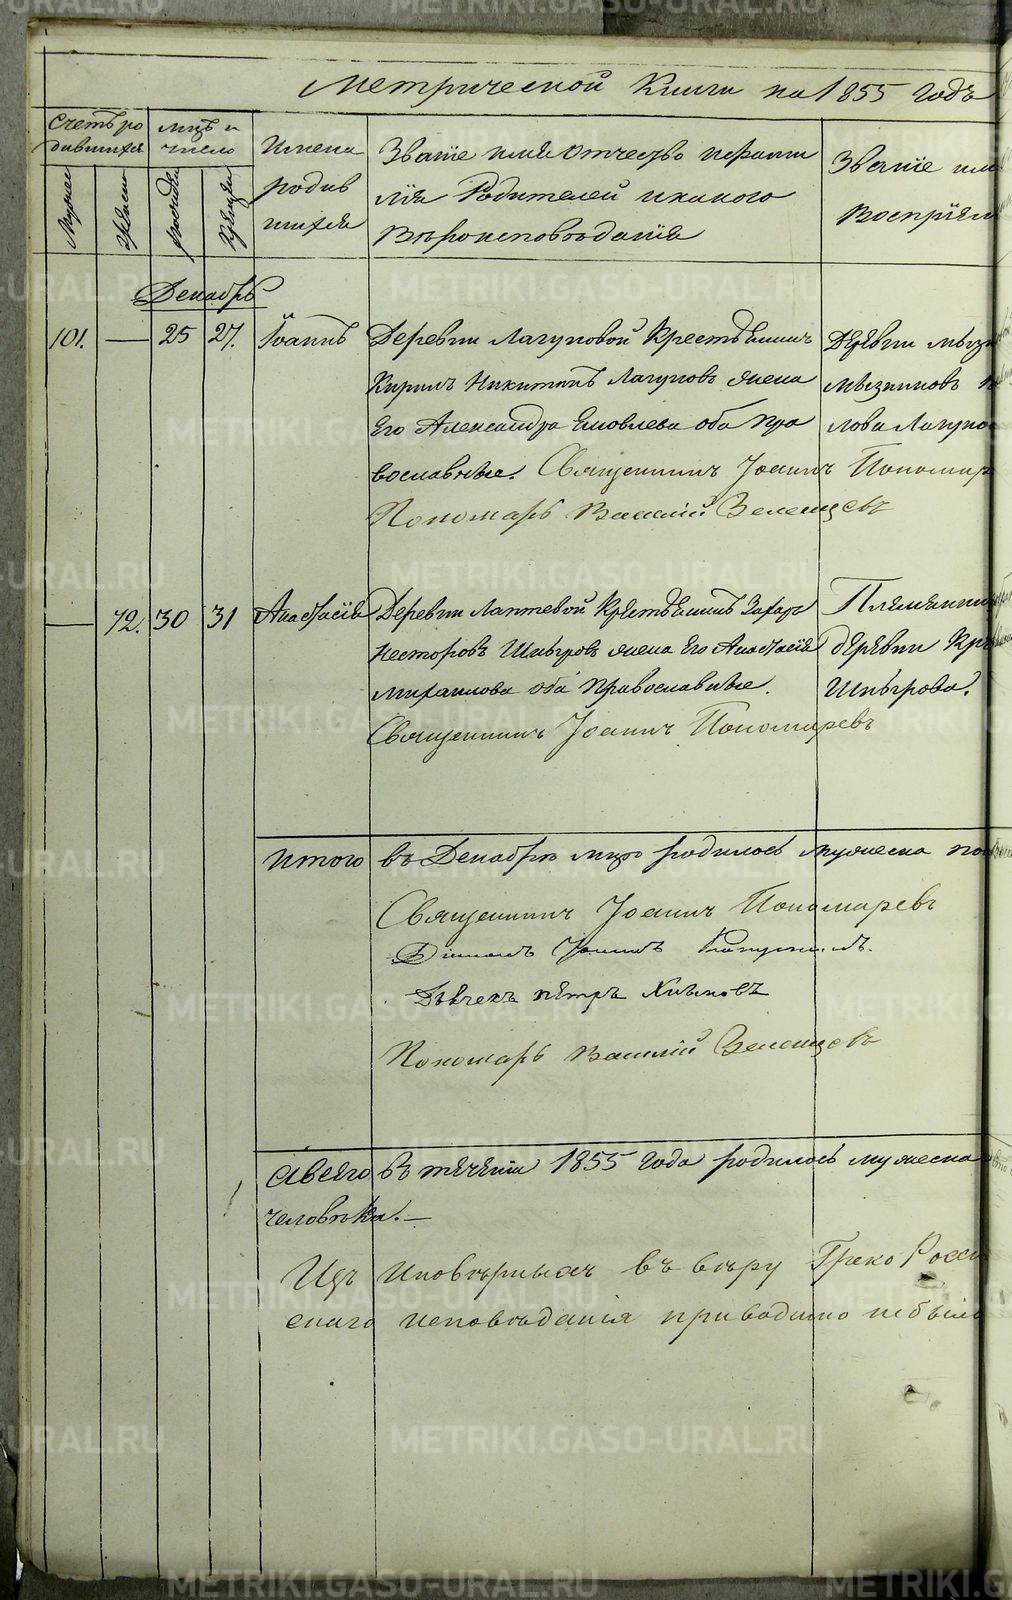 Метрической Книги на 1855 годъ
Счетъ ро
дившихся
мцъ и
число
Мужеска
Женска
рожденія
крещенія
Имена
родив
шихся
Званіе имя отчество и фами
лія Родителей и какого
Вѣроисповѣданія
Званіе имя
Воспріем
Декабрь
101. — 25 27. Іоаннъ
Деревни Лагуновой Крестьянинъ
Кирилъ Никитинъ Лагуновъ жена
Его Александра Евловлева оба пра
вославные. Священникъ Іоаннъ Пономар
Пономарь Василій Зеленцевъ
Деревни
лова Лагуно
— 72. 30 31 Анастасія
Деревни Лаптевой Крестьянинъ Захаръ
Несторовъ Шныровъ жена Его Анастасія
Михаилова оба православные.
Священникъ Іоаннъ Пономаревъ
Племянни
деревни
Шнырова.
Итого въ Декабрѣ мцѣ родилось мужеска пол
Священникъ Іоаннъ Пономаревъ
Діаконъ
Дьячекъ Петръ
Пономарь Василій Зеленцевъ
А всего въ теченіи 1855 года родилось мужеска
человѣка. —
Изъ Иновѣрныхъ въ вѣру Греко Россі
скаго исповѣданія приводимо небыло
METRIKI.GASO-URAL.RU